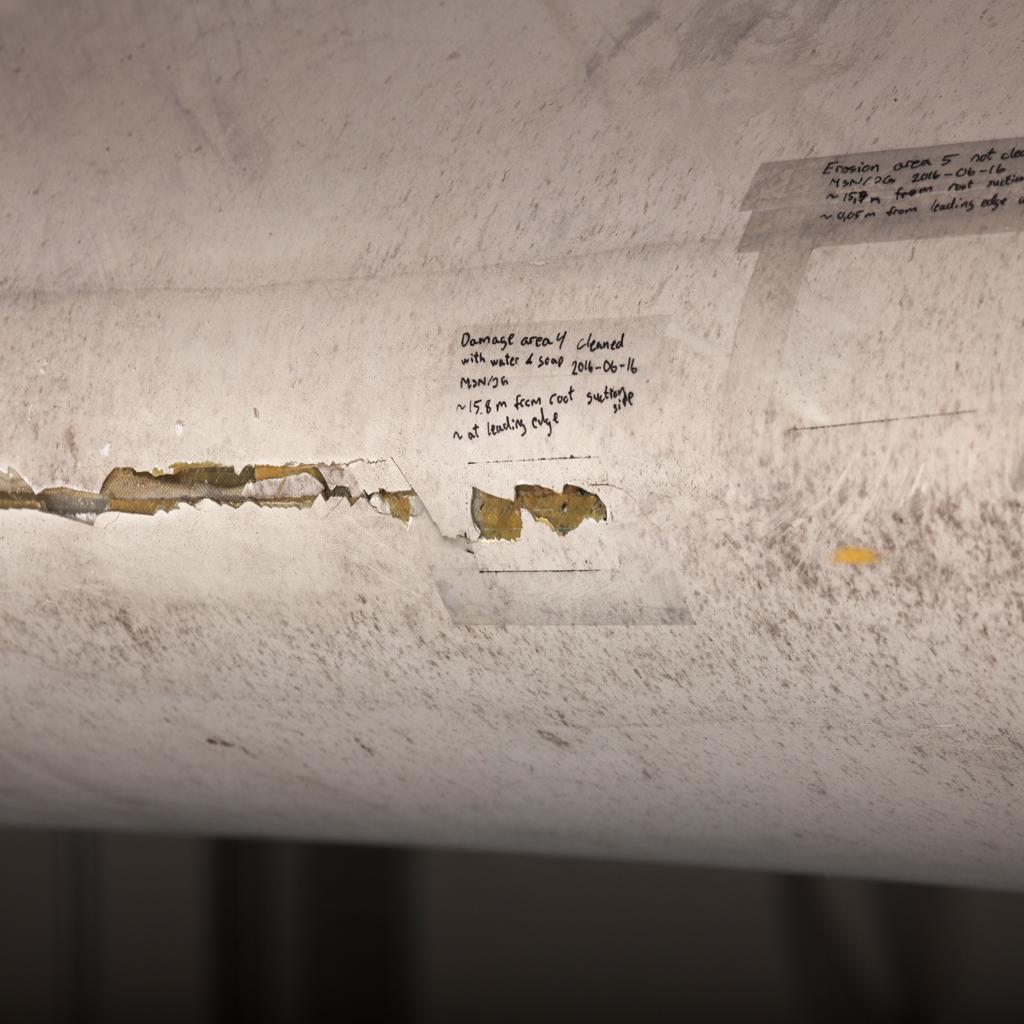 Damage area 4 cleaned
with water & soap 2016-06-16
MSN/JG
~15.8 m from root suction
side
~ at leading edge
Erosion area 5 not
MSN/JG 2016-06-16
~ 15,7 m from root
~ 0,05 m from leading edge